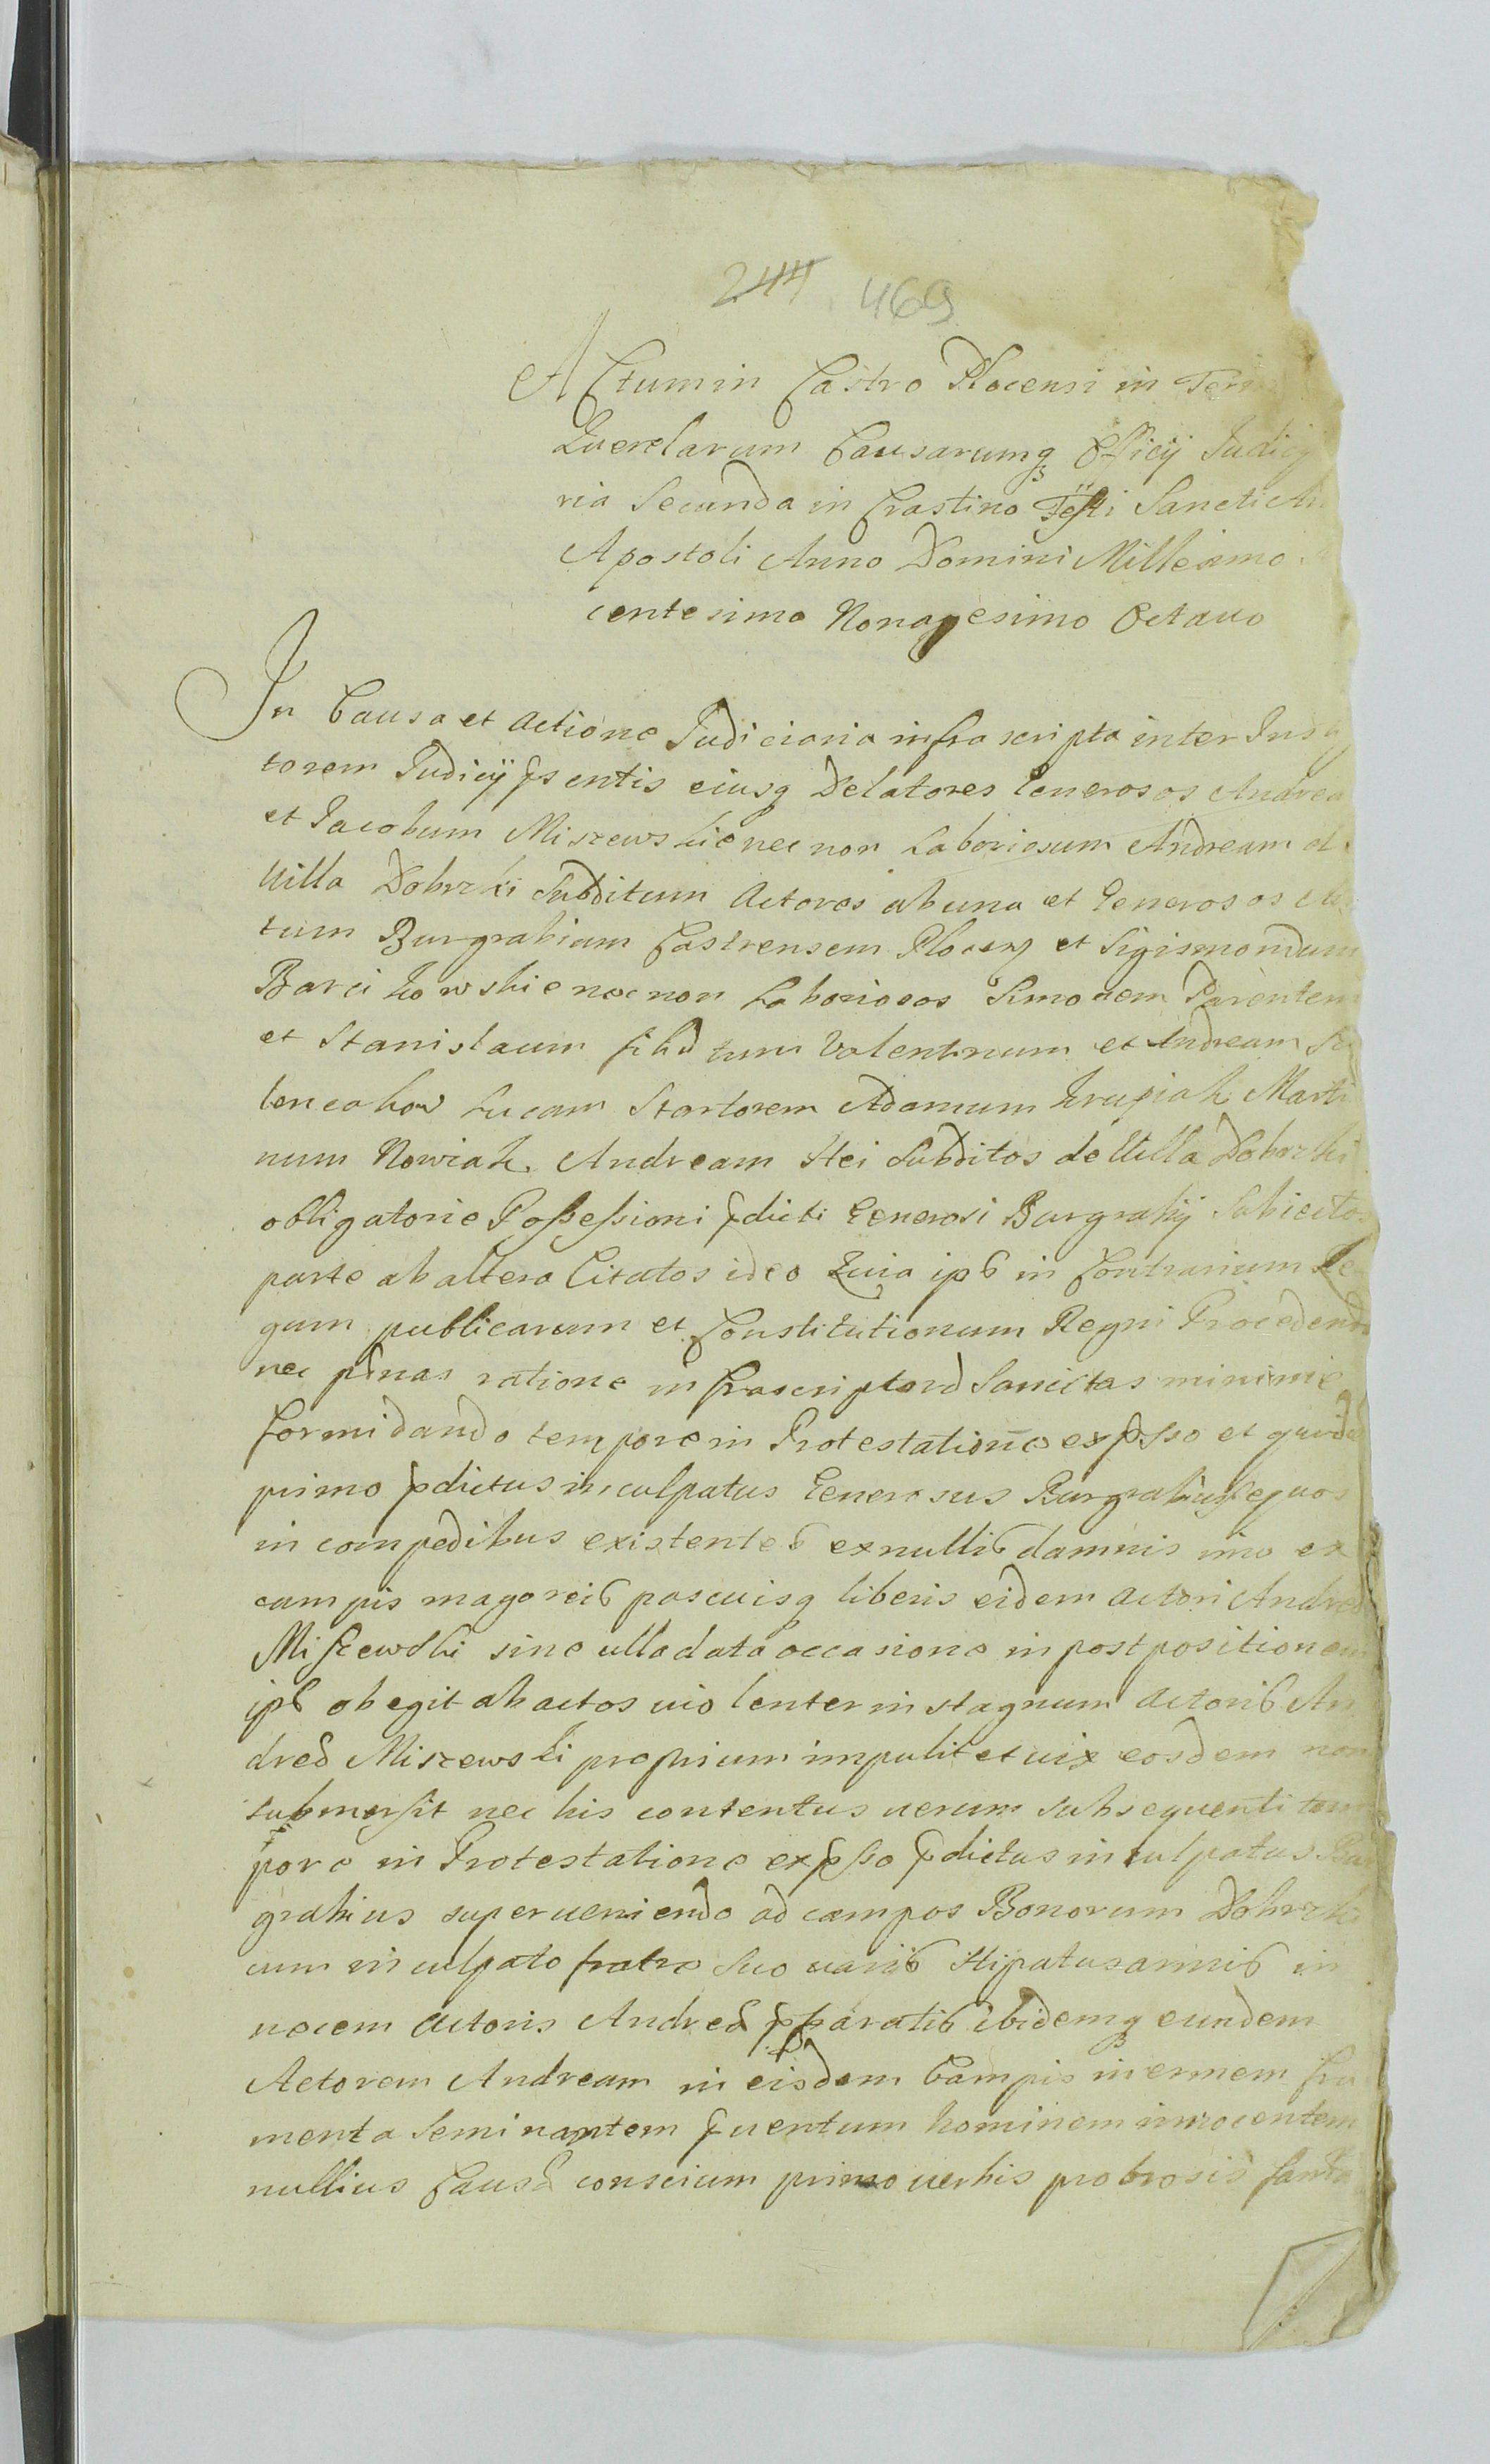 244 469
Actum in Castro Plocensi in
Querelarum Causarumq Officij Judicij
ria Secunda in Crastino Festi Sancti
Apostoli Anno Domini Millesimo
centesimo Nonagesimo Octauo
In Causa et Actione Judiciaria infrascripta inter
torem Judicij psentis eiusq Delatores Generosos Andrea
et Jacobum Miszewskie nec non Laboriosum Andream
Uilla Dobrzki Subditum Actores ab una et Generosos
tum Burgrabium Castrensem Plocen et Sigismondum
Barcikowskie nec non Laboriosos Simonem Parentem
et Stanislaum filiu tum Valentinum et Andream
Lucam Startorem Adamum Krupiak Marti
num Nowiak Andream Stei Subditos de Uilla Dobrzki
obligatorie Possessioni pdicti Generosi Burgrabij Subiectos
parte ab altera Citatos ideo Quia ips in Contrarium Le
gum publicarum et Constitutionum Regni Procedendo
nec pænas ratione infrascriptoru Sancitas minime
formidando tempore in Protestatione expsso et
primo pdictus inculpatus Generosus Burgrabius equos
in compedibus existentes ex nullis damnis imo ex
campis pascuisq liberis eidem Actori Andreæ
Miszewski sine ulla data occasione in postpositionem
ips obegit abactos uiolenter in stagnum Actoris An
dreæ Miszewski proprium impulit et uix eosdem non
submersit nec his contentus uerum subsequenti tem
pore in Protestatione expsso pdictus inculpatus Bur
grabius superueniendo ad campos Bonorum Dobrzki
cum inculpato fratre suo uarijs stipatus armis in
necem Actoris Andreæ pparatis ibidemq eundem
Actorem Andream in eisdem Campis inermem fru
menta Seminantem quentum hominem innocentem
nullius Causæ conscium primo uerbis probrosis